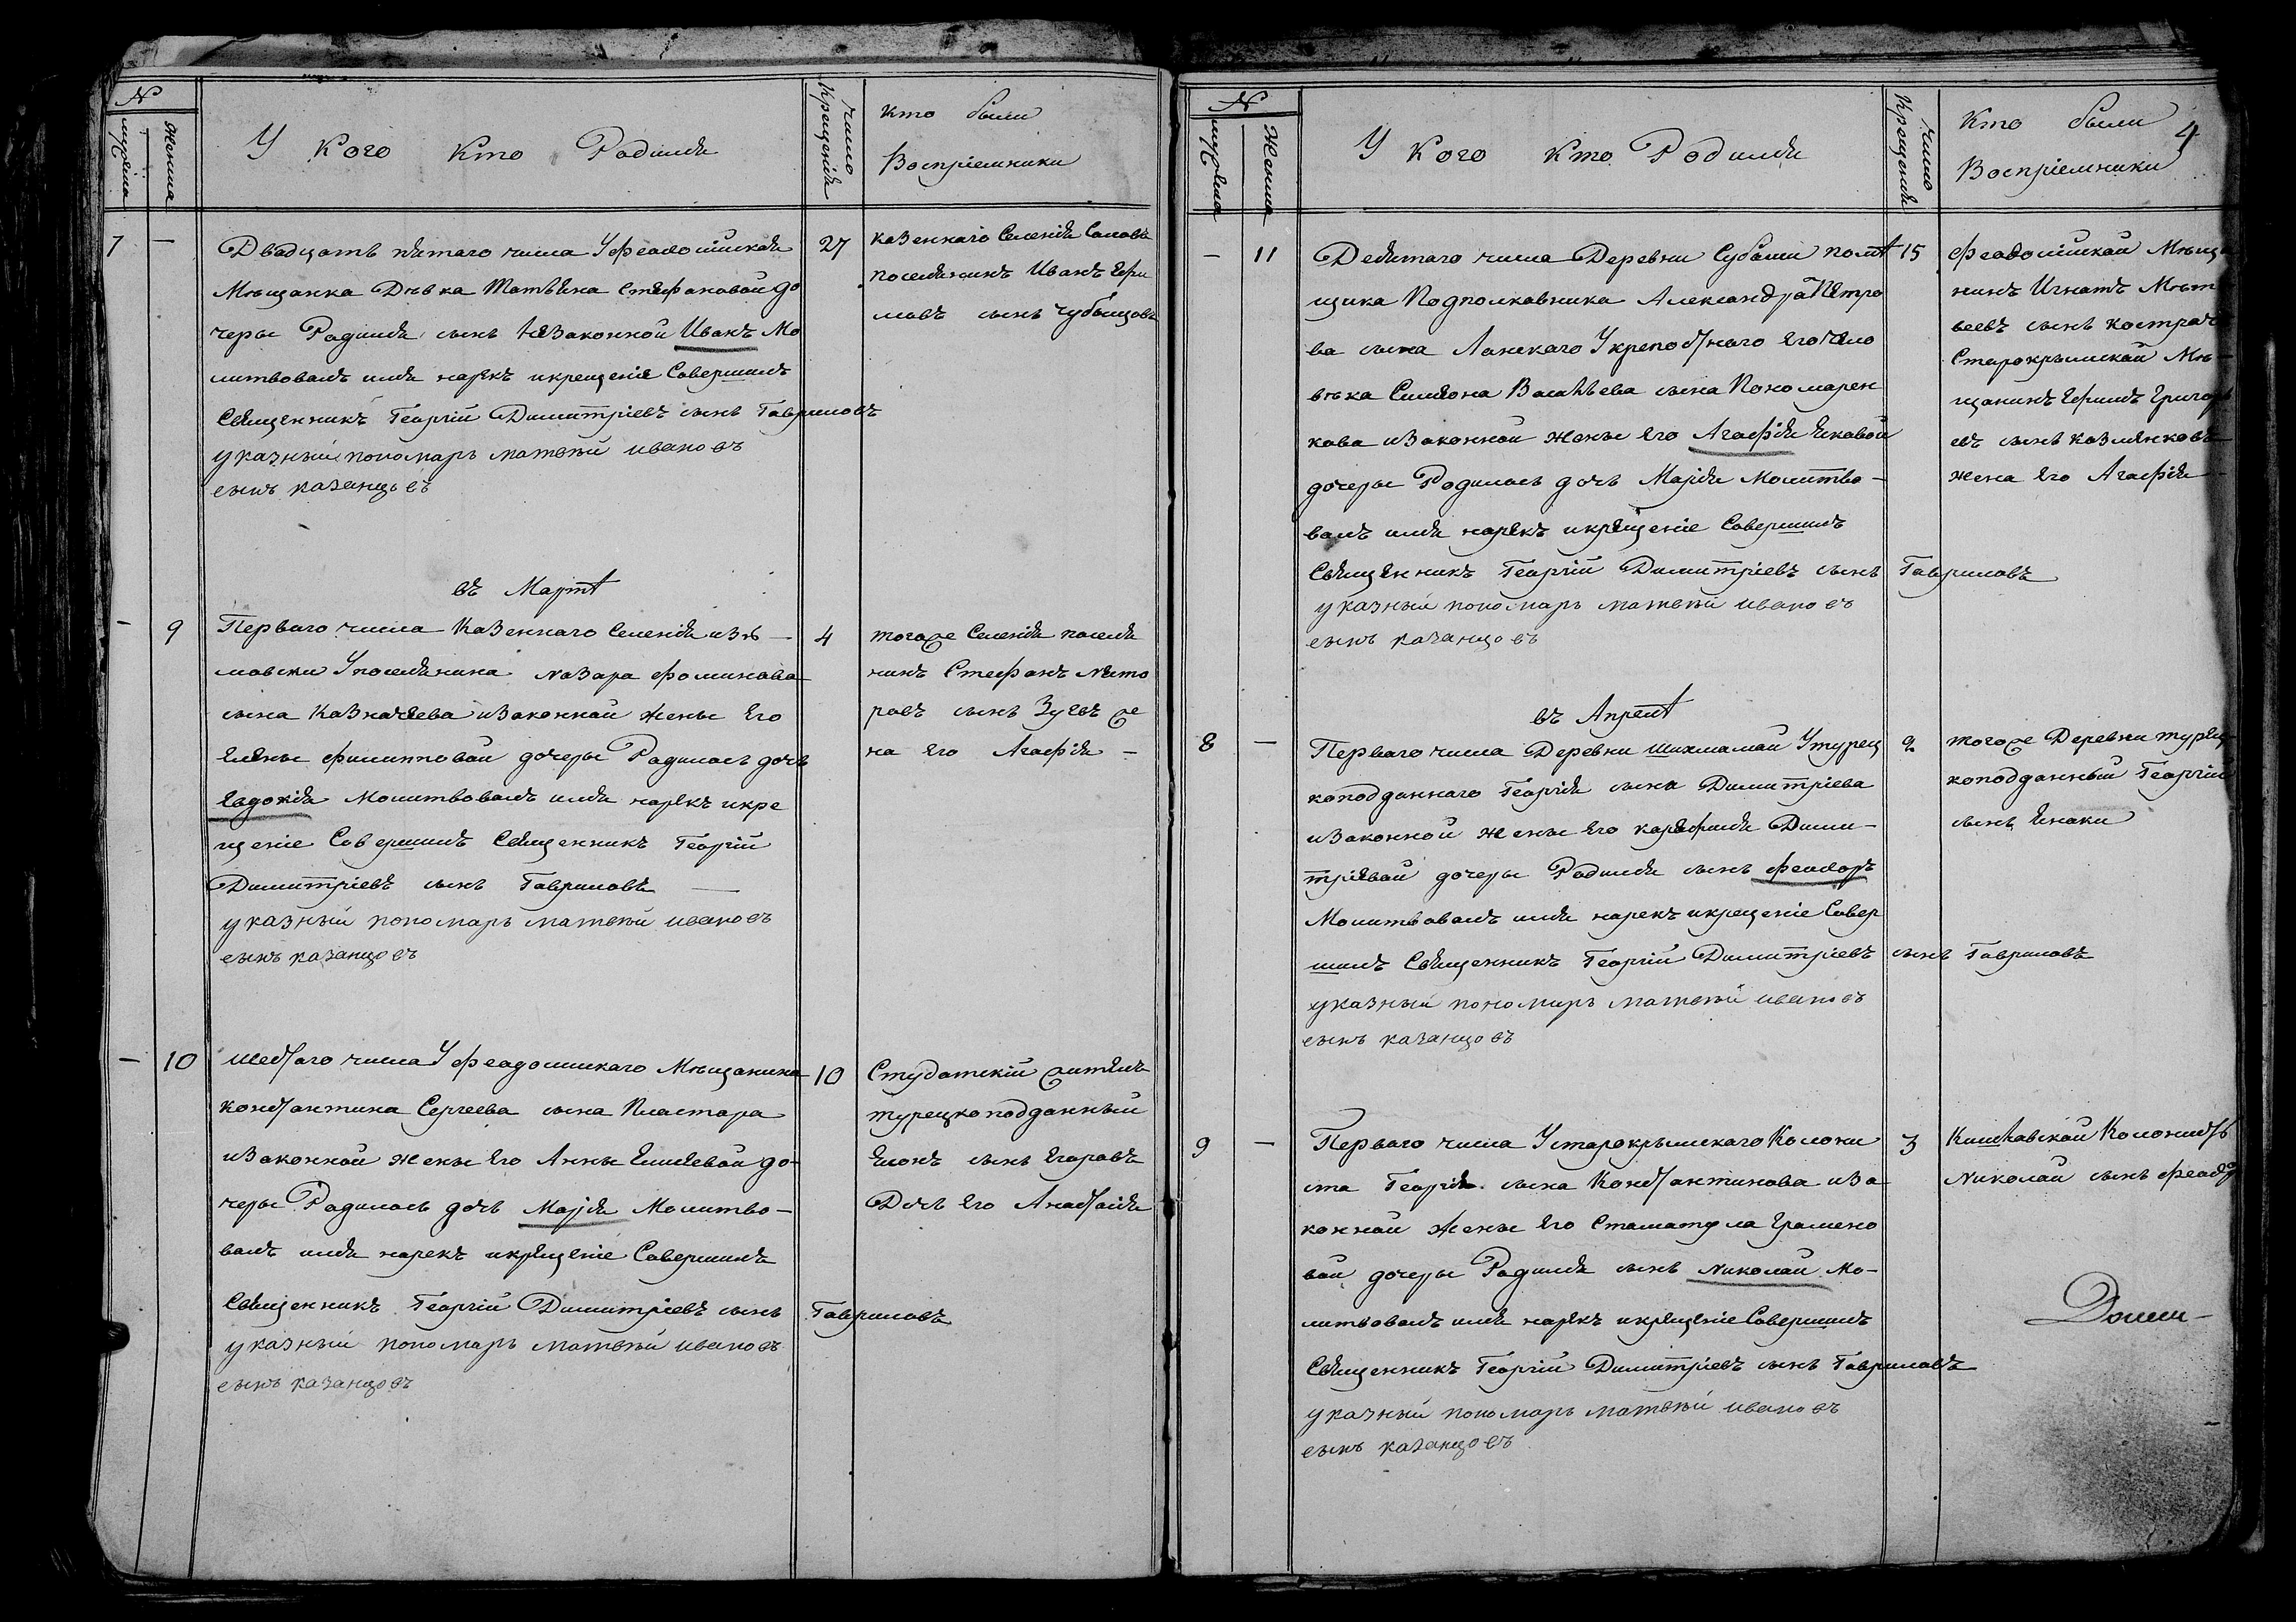 N
мужеска
женска
У кого кто Родился
число крещенія
кто были
Воспріемники
7 — 27
Двадцать пятаго числа У феодосійской
Мѣщанка Дѣвка Татьяна Стефановой до
черы Родился сынъ незаконной Иванъ Мо
литвовалъ имя нарекъ икрещеніе Совершилъ
Священникъ Георгій Димитріевъ сынъ Гавриловъ
указный пономарь матвѣй ивановъ
сынъ казанцовъ
казеннаго Селенія Саловъ
поселянинъ Иванъ Ефи
мовъ сынъ Чубынцовъ
въ Мартѣ
— 9 4
Перваго числа Казеннаго Селенія изю—
мовски Упоселянина Назара Фоминова
сына Казначеева изаконной жены Его
Елены филипповой дочеры Родилась дочь
Евдокія Молитвовалъ имя нарекъ икре
щеніе Совершилъ Священникъ Георгій
Димитріевъ сынъ Гавриловъ —
указный пономарь матвѣй ивановъ
сынъ казанцовъ
тогоже Селенія поселя
нинъ Стефанъ Никто
ровъ сынъ Зуевъ же
на Его Агафія —
— 10 10
шестаго числа У феодосийскаго Мѣщанина
константина Сергеева сына Пластара
изаконной жены Его Анны Елисеевой до-
черы Родилась дочь Марія Молитво-
валъ имя нарекъ икрещеніе Совершилъ
Священникъ Георгій Димитріевъ сынъ Гавриловъ
указный пономарь матвѣй ивановъ
сынъ казанцовъ
Студатскій житель
турецкоподданный
сынъ Егоровъ
Дочь Его Анастасія
N
мужеска
Женска
У кого кто Родился
число крещенія
Кто были
Воспріемники
4
— 11 15
Девятаго числа Деревни Субаши помѣ
щика Подполковника Александра Петро
ва сына Ланскаго Укрепостнаго Его чело
вѣка Симеона Васильева сына Пономарен
кова изаконной жены Его Агафія Яковой
дочеры Родилась дочь Марія Молитво-
валъ имя нарекъ икрещеніе Совершилъ
Священникъ Георгій Димитріевъ сынъ Гавриловъ
указный пономарь матвѣй ивановъ
сынъ казанцовъ
феодосійской Мѣща
нинъ Игнатъ Мат
веевъ сынъ
Старокрымской Мѣ-
щанинъ Ефимъ Григорь
евъ сынъ Козленковъ
жена Его Агафія
въ Апрелѣ
8 — 2
Перваго числа Деревни шихмамай Утурец
коподданнаго Георгія сына Димитріева
изаконной жены Его Димит-
тріевой дочеры Родился сынъ Феодоръ
Молитвовалъ имя нарекъ икрещеніе Совер
шилъ Священникъ Георгій Димитріевъ сынъ Гавриловъ
указный пономарь матвѣй ивановъ
сынъ казанцовъ
тогоже Деревни турец-
коподданный Георгій
сынъ Янаки
9 — 3
Перваго числа Устарокрымскаго Колони
ста Георгія сына Константинова иза
конной жены Его Стаматула Грамено
вой дочеры Родился сынъ Николай Мо-
литвовалъ имя нарекъ икрещеніе Совершилъ
Священникъ Георгій Димитріевъ сынъ Гавриловъ
указный пономарь матвѣй ивановъ
сынъ казанцовъ
Кишлавской Колонистъ
Николай сынъ Феодо